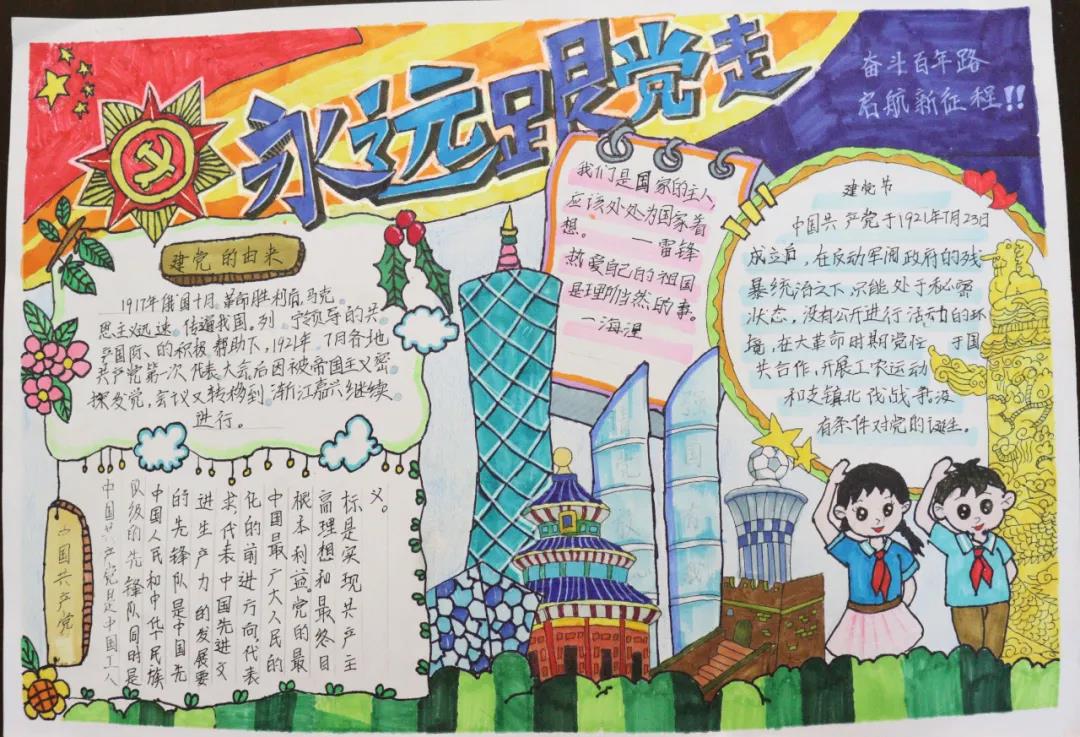 永远跟党走
奋斗百年路
启航新征程!!
建党的由来
1917年俄国十月革命胜利后,马克
思主义迅速传遍我国,列宁领导的共
产国际、的积极帮助下,1921年7月各地
共产党第一次代表大会后因被帝国主义密
探发觉,会议又转移到浙江嘉兴继续
进行。
我们是国家的主人
应该处处为国家着
想。 一雷锋
热爱自己的祖国
是理所当然的事。
一海涅
建党节
中国共产党于1921年7月23日
成立后,在反动军阀政府的残
暴统治之下,只能处于秘密
状态,没有公开进行活动的环
境,在大革命时期党任于国
共合作,开展工农运动
和支镇北伐战争没
有条件对党的诞生。
中国共产党
中国共产党是中国工人
队级的先锋队同时是
中国人民和中华民族
的先锋队是中国先
进生产力的发展要
求代表中国先进文
化的前进方向,代表
中国最广大人民的
根本利益。党的最
高理想和最终目
标是实现共产主
义。